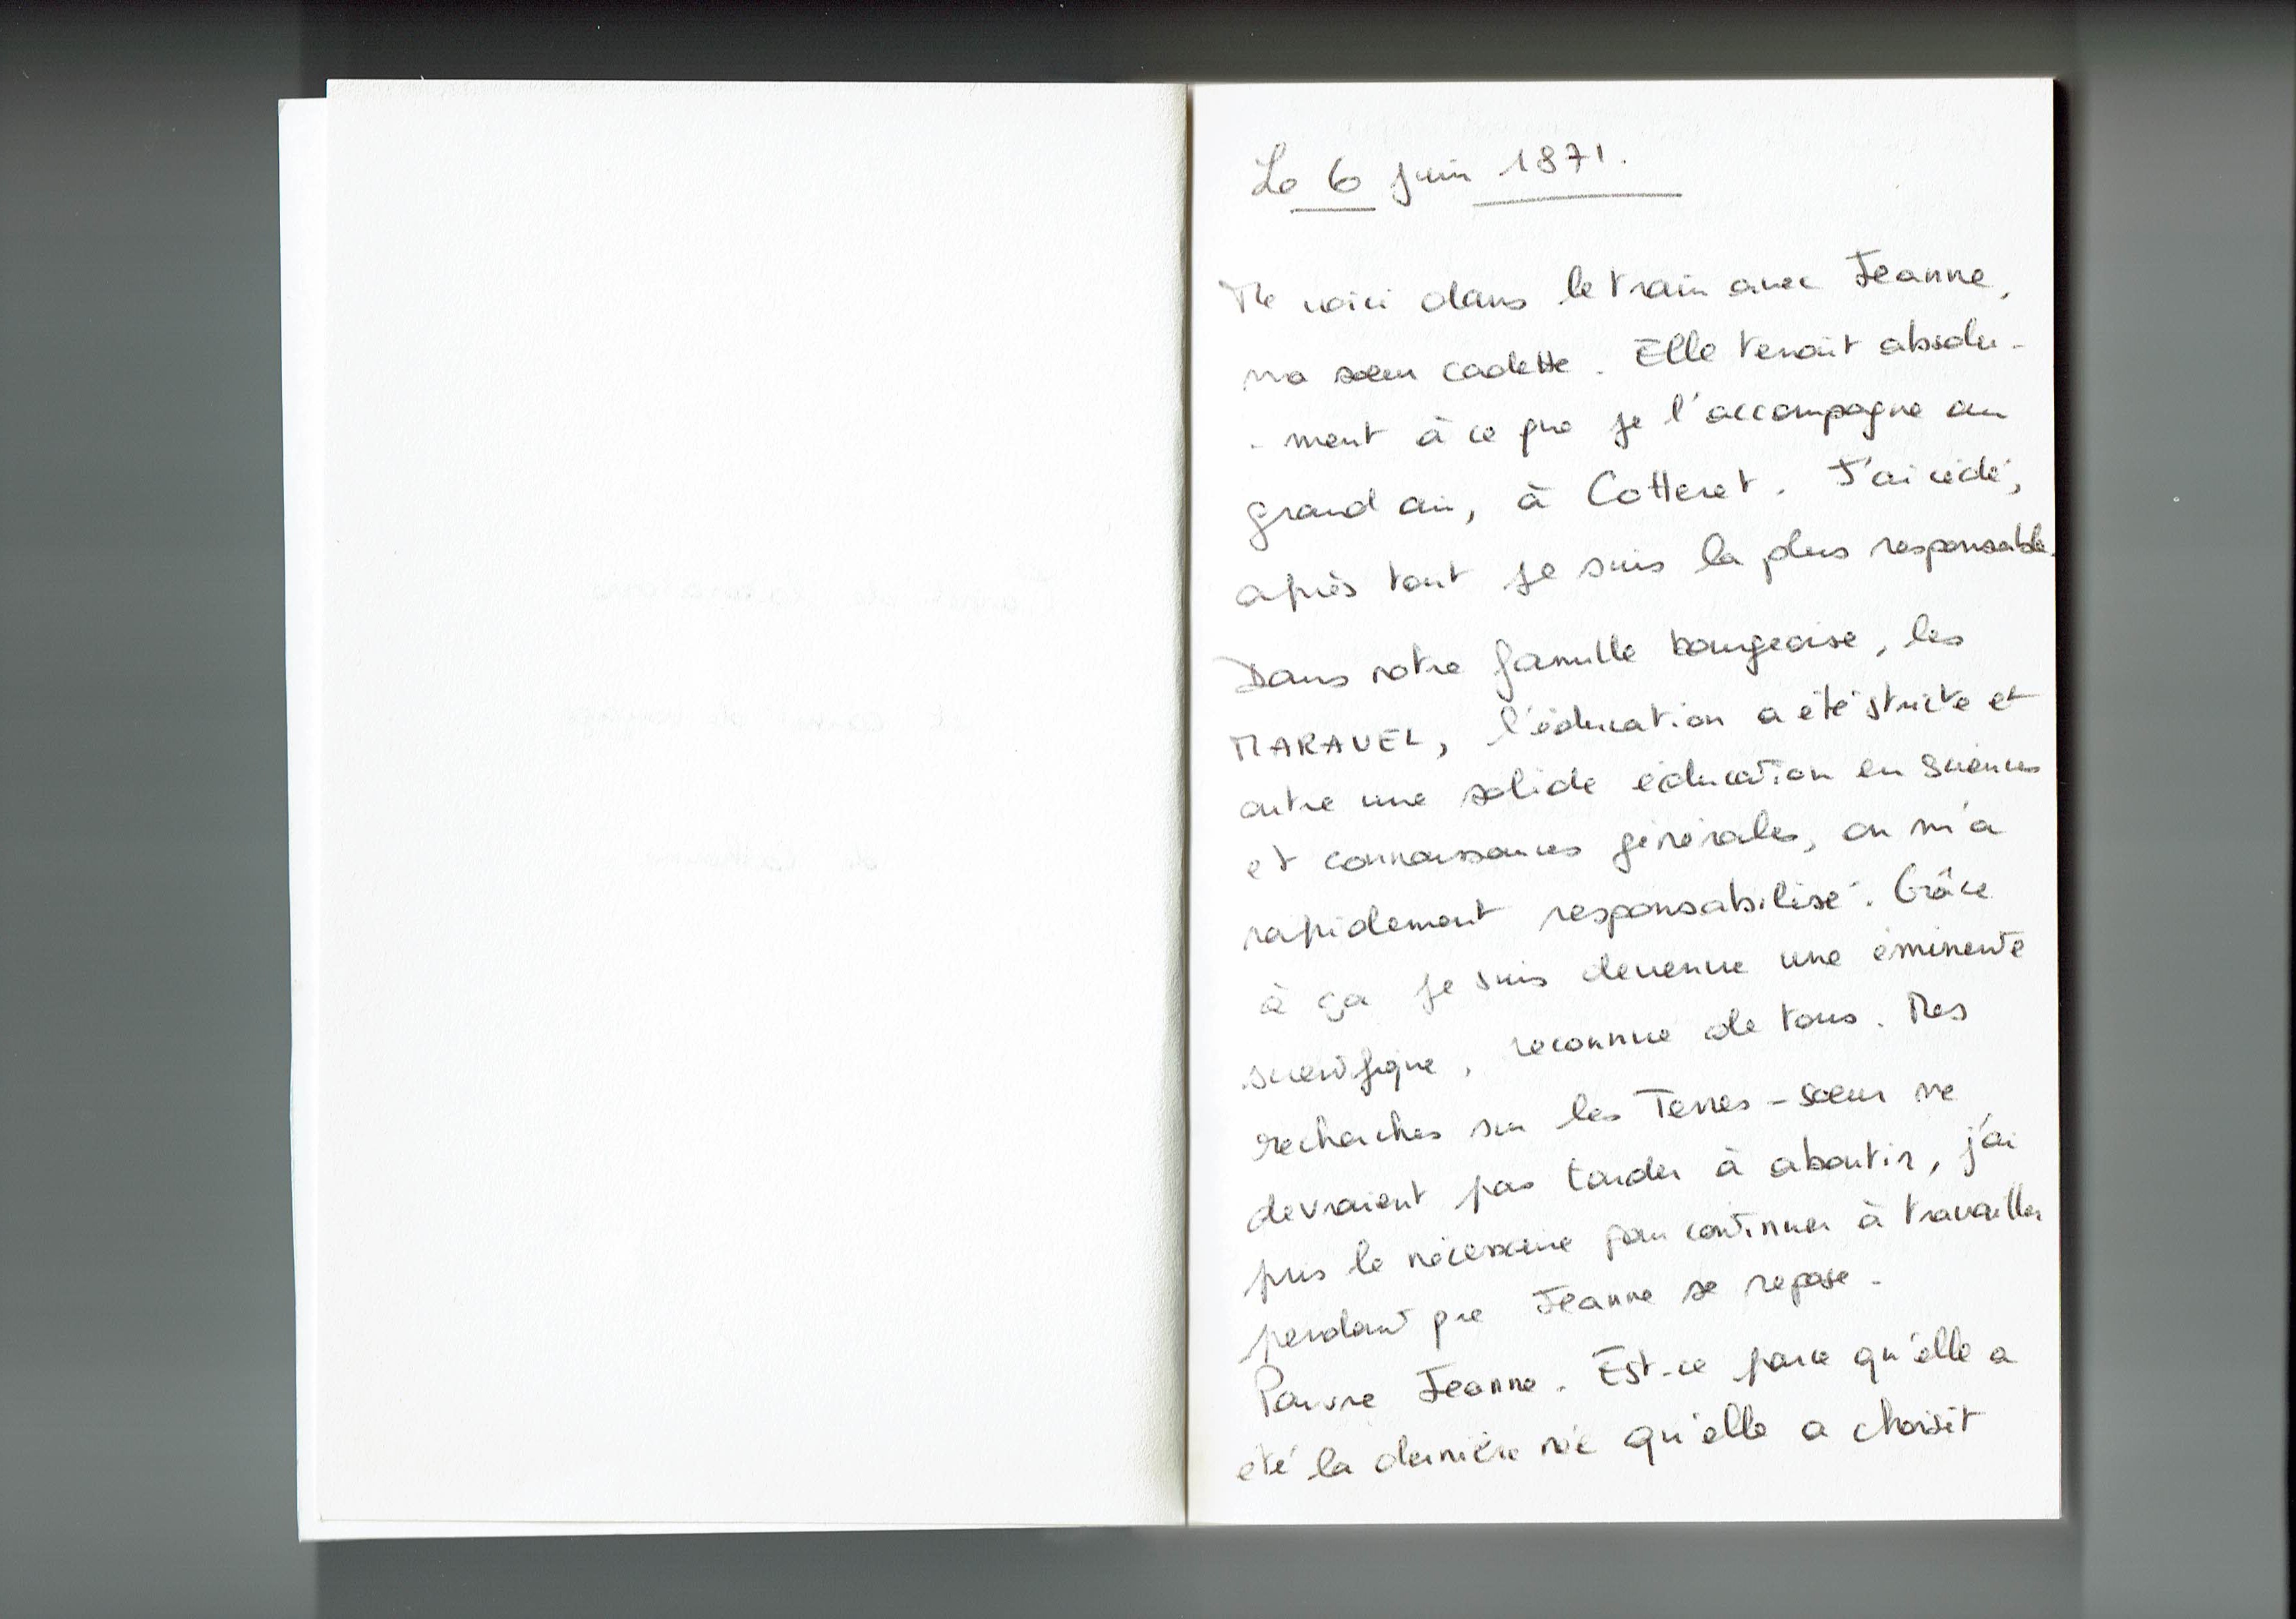 Le 6 juin 1871.
Me voici dans le train avec Jeanne,
ma soeur cadette. Elle tenait absolu-
-ment à ce que je l'accompagne au
grand air, à Cotteret. J'ai cédé,
après tout je suis la plus responsable.
Dans notre famille bourgeoise, les
MARAVEL, l'éducation a été stricte et
outre une solide éducation en sciences
et connaissances générales, on m'a
rapidement responsabilisé. Grâce
à ça je suis devenue une éminente
scientifique, reconnue de tous. Mes
recherches sur les Terres-soeur ne
devraient pas tarder à aboutir, j'ai
pris le nécessaire pour continuer à travailler
pendant que Jeanne se repose.
Pauvre Jeanne. Est-ce parce qu'elle a
été la dernière née qu'elle a choisit